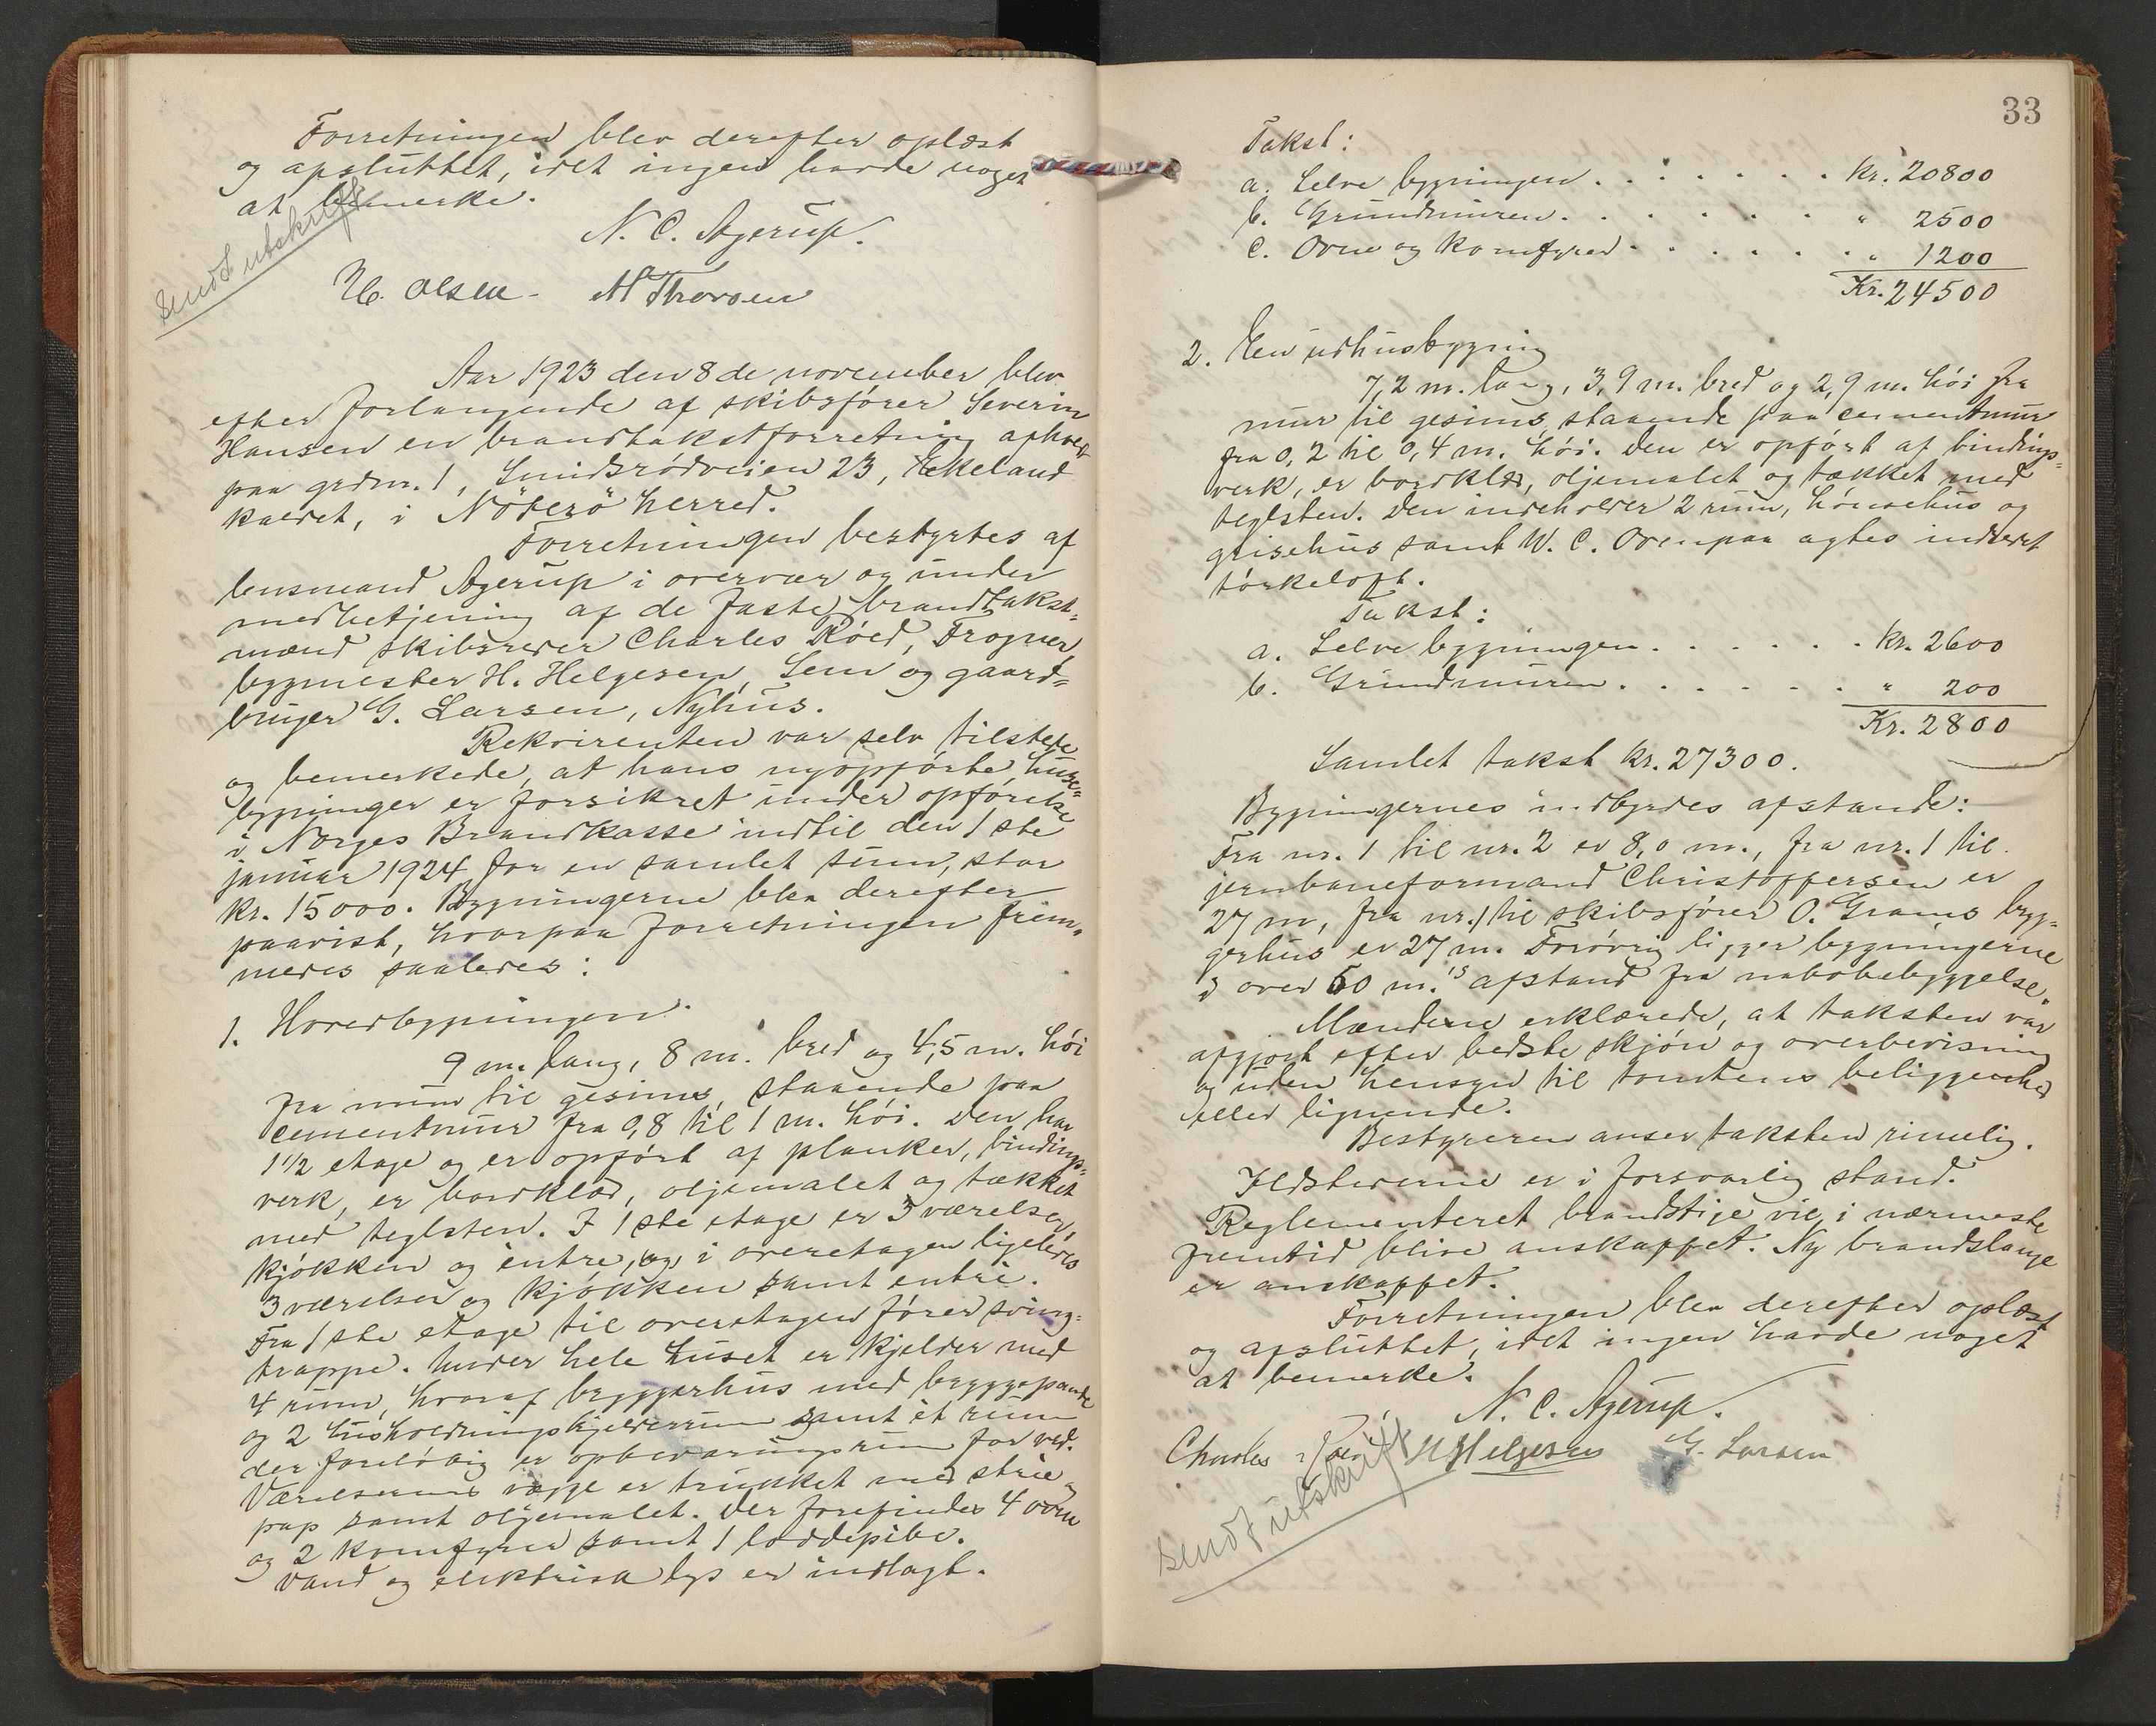 Forretningen blev derefter oplæst
og afsluttet, idet ingen havde noget
at bemerke.
N. C. Agerup.
H. Olsen - M Thorsen
Sendt utskrift
Aar 1923 den 8de november blev
efter forlangende af skibsfører Severin
Hansen en brandtakstforretning afholdt
paa grdnr. 1, Smidsrødveien 23, Ekeland
kaldet, i Nøterø herred.
Forretningen bestyrtes af
lensmand Agerup i overvær og under
medbetjening af de faste brandtakst=
mænd skibsreder Charles Røed, Trogner,
bygmester H. Helgesen, Sem og gaard=
bruger G. Larsen, Nyhus.
Rekvirenten var selv tilstede
og bemerkede, at hans nyopførte huse=
bygninger er forsikret under opførelse
i Norges Brandkasse indtil den 1ste
januar 1924 for en samlet sum, stor
kr. 15000. Bygningerne blev derefter
paavist, hvorpaa forretningen frem=
medes saaledes:
1. Hovedbygningen.
9 m. lang, 8 m. bred og 4,5 m. høi
fra mur til gesims, staaende paa
cementmur fra 0,8 til 1 m. høi. Den har
1 1/2 etage og er opført af planker, bindings=
verk, er bordklæd, oljemalet og tækket
med teglsten. I 1ste etage er 3 værelser,
kjøkken og entre, og i overetagen ligeledes
3 værelser og kjøkken samt entré.
Fra 1ste etage til overetagen fører sving=
trappe. Under hele huset er kjelder med
4 rum, hvoraf bryggerhus med bryggepande
og 2 husholdningskjelderrum samt et rum
der foreløbig er opbevaringsrum for ved.
Værelsernes vægge er trukket med strie og
pap samt oljemalet. Der forefindes 4 ovne
og 2 komfyrer samt 1 loddepibe.
Vand og elektrisk lys er indlagt.
33
Takst:
a. Selve bygningen . . . . . . . kr. 20800
b. Grundmuren . . . . . . . " 2500
c. Ovne og komfyrer . . . . . . . " 1200
Kr. 24500
2. En udhusbygning
7,2 m. lang, 3,9 m. bred og 2,9 m. høi fra
mur til gesims, staaende paa cementmur
fra 0,2 til 0,4 m. høi. Den er opført af bindings=
verk, er bordklæd, oljemalet og tækket med
teglsten. Den indeholder 2 rum, hønsehus og
grisehus samt W. C. Ovenpaa agtes indredet
tørkeloft.
Takst:
a. Selve bygningen . . . . . . kr. 2600
b. Grundmuren . . . . . . " 200
Kr. 2800
Samlet takst kr. 27300.
Bygningernes indbyrdes afstande:
Fra nr. 1 til nr. 2 er 8,0 m., fra nr. 1 til
jernbaneformand Christoffersen er
27 m, fra nr. 1 til skibsfører O. Grams bryg=
gerhus er 27 m. Forøvrig ligger bygningerne
i over 50 m.'s afstand fra nabobebyggelse.
Mændene erklærede, at taksten var
afgjort efter bedste skjøn og overbevisning
og uden hensyn til tomtens beliggenhed
eller lignende.
Bestyreren anser taksten rimelig.
Ildstederne er i forsvarlig stand.
Reglementeret brandstige vil i nærmeste
fremtid blive anskaffet. Ny brandslange
er anskaffet.
Forretningen blev derefter oplæst
og afsluttet, idet ingen havde noget
at bemerke.
N. C. Agerup.
Charles Røed H Helgesen G. Larsen
Sendt utskrift